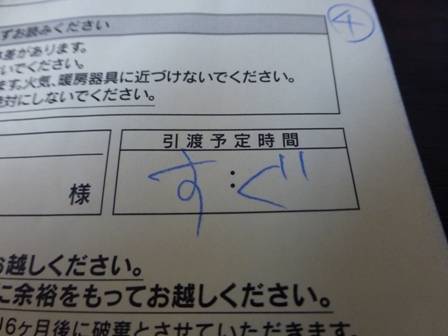 ④
ずお読みください
差があります。
いでください。
ます。火気、暖房器具に近づけないでください。
絶対にしないでください。
引渡予定時間
す:ぐ
様
お越しください。
に余裕をもってお越しください。
6ヶ月後に破棄とさせていただきます。